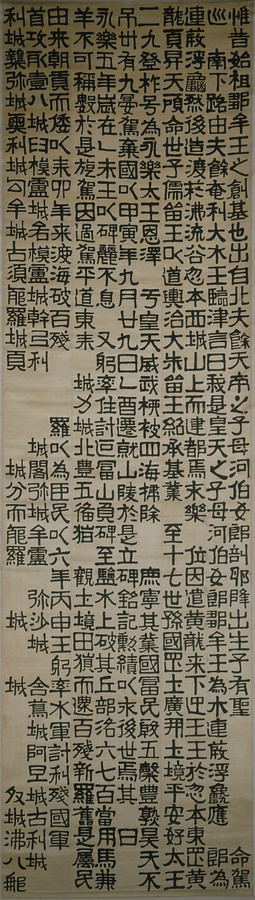 惟昔始祖鄒牟王之創基也出自北夫餘天帝之子母河伯女郎剖卵降出生子有聖 命駕
巡 南下路由夫餘奄利大水王臨津言曰我是皇天之子母河伯女郎鄒牟王為木連葭浮龜應 即為
連葭浮龜然後造渡於沸流谷忽本西城山上而建都焉永樂 位因遣黃龍來下迎王王於忽本東罡黃
龍負昇天顧命世子儒留王以道輿治大朱留王紹承基業 至十七世孫國罡上廣開土境平安好太王
二九登祚号為永樂太王恩澤 亐皇天威武柳被四海掃除 庶寧其業國富民殷五穀豊熟昊天不
弔卅有九晏駕棄國以甲寅年九月廿九日乙酉遷就山陵於是立碑銘記勳績以永後世焉其 曰
永樂五年歲在乙未王以碑麗不息 又躬率住討叵富山負碑至鹽水上破其丘部洛六七百當用馬兼
羊不可稱數於是旋駕因過駕平道東來 城力城北豊五備猶 觀土境田獵而還百殘新羅舊是屬民
由來朝貢而倭以耒卯年來渡海破百殘 羅以為臣民以六年丙申王躬率水軍討利殘國軍
首攻取壹八城臼模盧城各模盧城幹弓利 城閣弥城牟盧 弥沙城 含蔦城阿旦城古利城
利城雜弥城奧利城勾牟城古須能羅城頁 城分而能羅 城 城 城沸八那